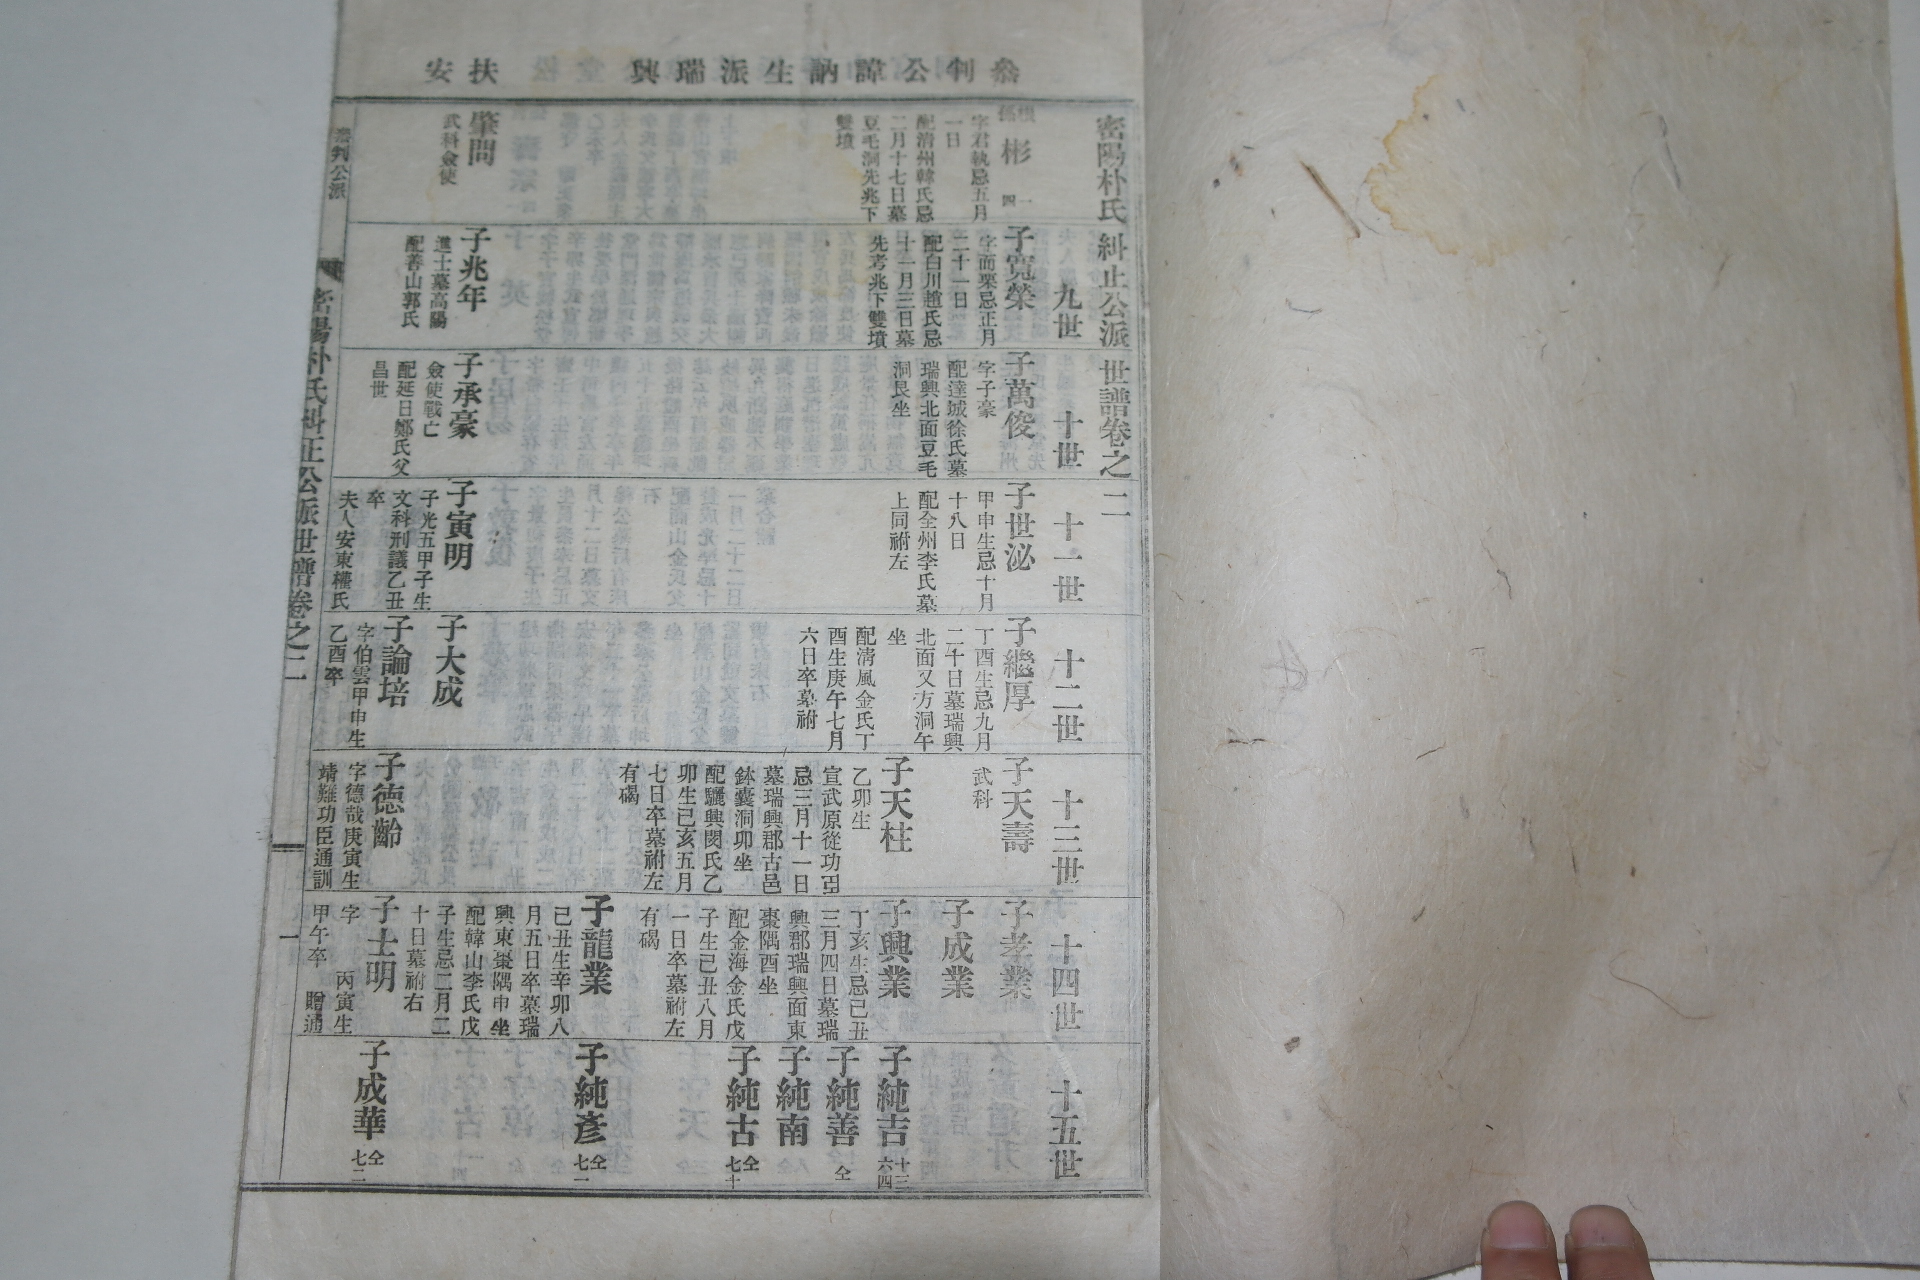 參判公諱訥生派瑞興 扶安
密陽朴氏糾正公派世譜卷之二
九世
十世
十一世
十二世
十三世
十四世
十五世
彬
一四
字君執忌五月
一日
配清州韓氏忌
二月十七日墓
豆毛洞先兆下
雙墳
肇問
武科僉使
子寬榮
字而栗忌正月
二十一日
配白川趙氏忌
十一月三日墓
先考兆下雙墳
子兆年
進士墓高陽
配善山郭氏
子萬俊
字子豪
配達城徐氏墓
瑞興北面豆毛
洞艮坐
子承豪
僉使戰亡
配延日鄭氏父
昌世
子世泌
甲申生忌十月
十八日
配全州李氏墓
上同祔左
子寅明
子光五甲子生
文科刑議乙丑
卒
夫人安東權氏
子繼厚
丁酉生忌九月
二十日墓瑞興
北面又方洞午
坐
配清風金氏丁
酉生庚午七月
六日卒墓祔
子大成
子論培
字伯雲甲申生
乙酉卒
子天壽
武科
子天柱
乙卯生
宣武原從功臣
忌三月十一日
墓瑞興郡古邑
鉢囊洞卯坐
配驪興閔氏乙
卯生己亥五月
七日卒墓祔左
有碣
子德齡
字德哉庚寅生
靖難功臣通訓
子孝業
子成業
子興業
丁亥生忌己丑
三月四日墓瑞
興郡瑞興面東
棗隅酉坐
配金海金氏戊
子生己丑八月
一日卒墓祔左
有碣
子龍業
己丑生辛卯八
月五日卒墓瑞
興東棗隅申坐
配韓山李氏戊
子生忌二月二
十日墓祔右
子士明
字 丙寅生
甲午卒 贈通
子純吉
十三
六四
子純善
仝
子純南
子純古
仝
七十
子純彥
仝
七一
子成華
仝
七二
參判公派
密陽朴氏糾正公派世譜卷之二
一